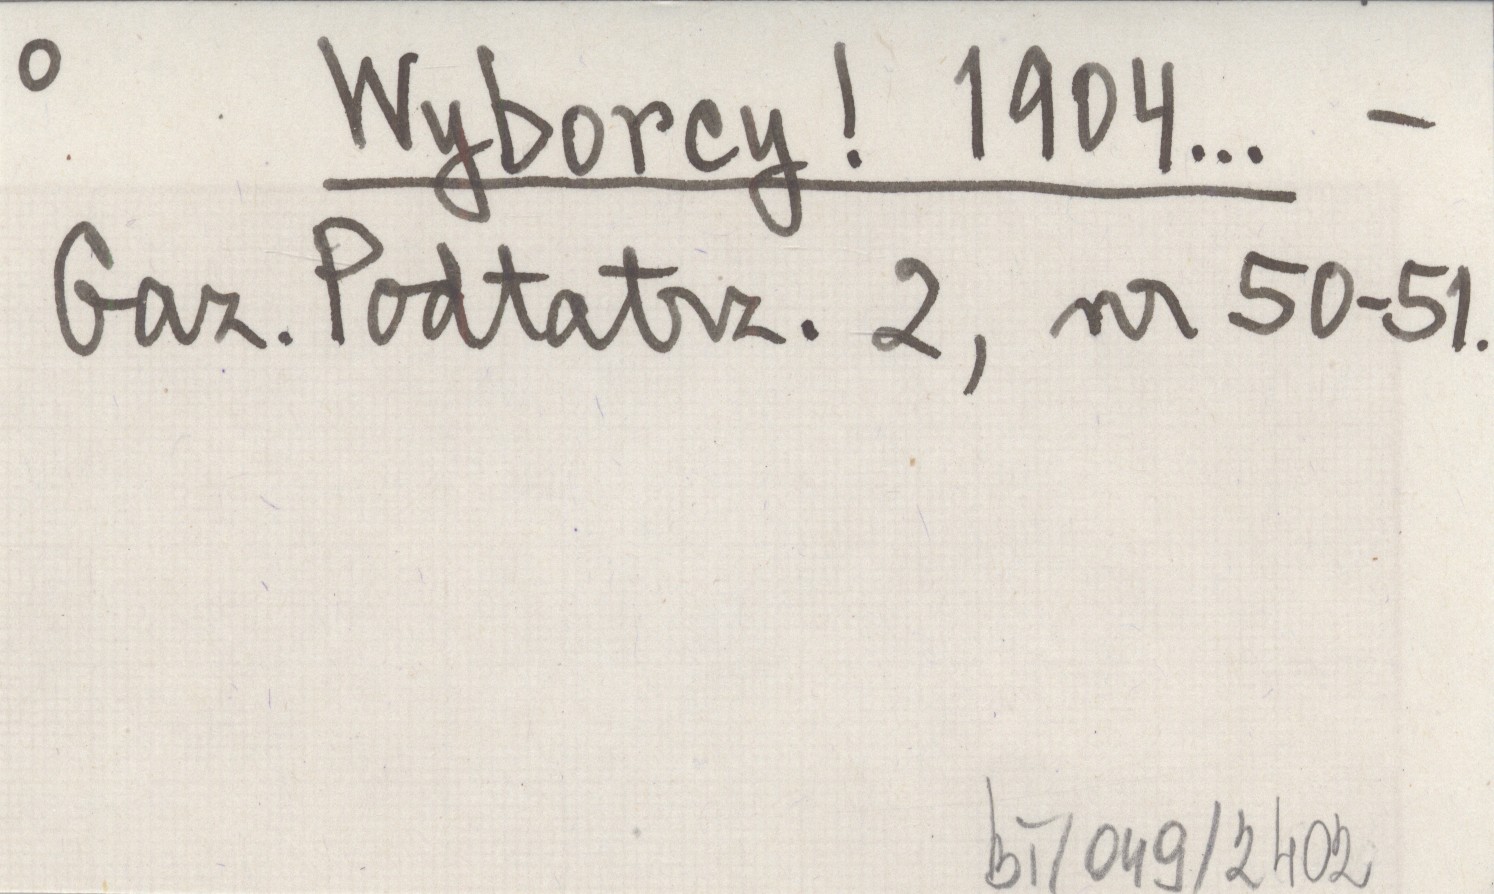 o Wyborcy! 1904... -
Gaz. Podtatrz. 2, nr 50-51.
bT/049/2402